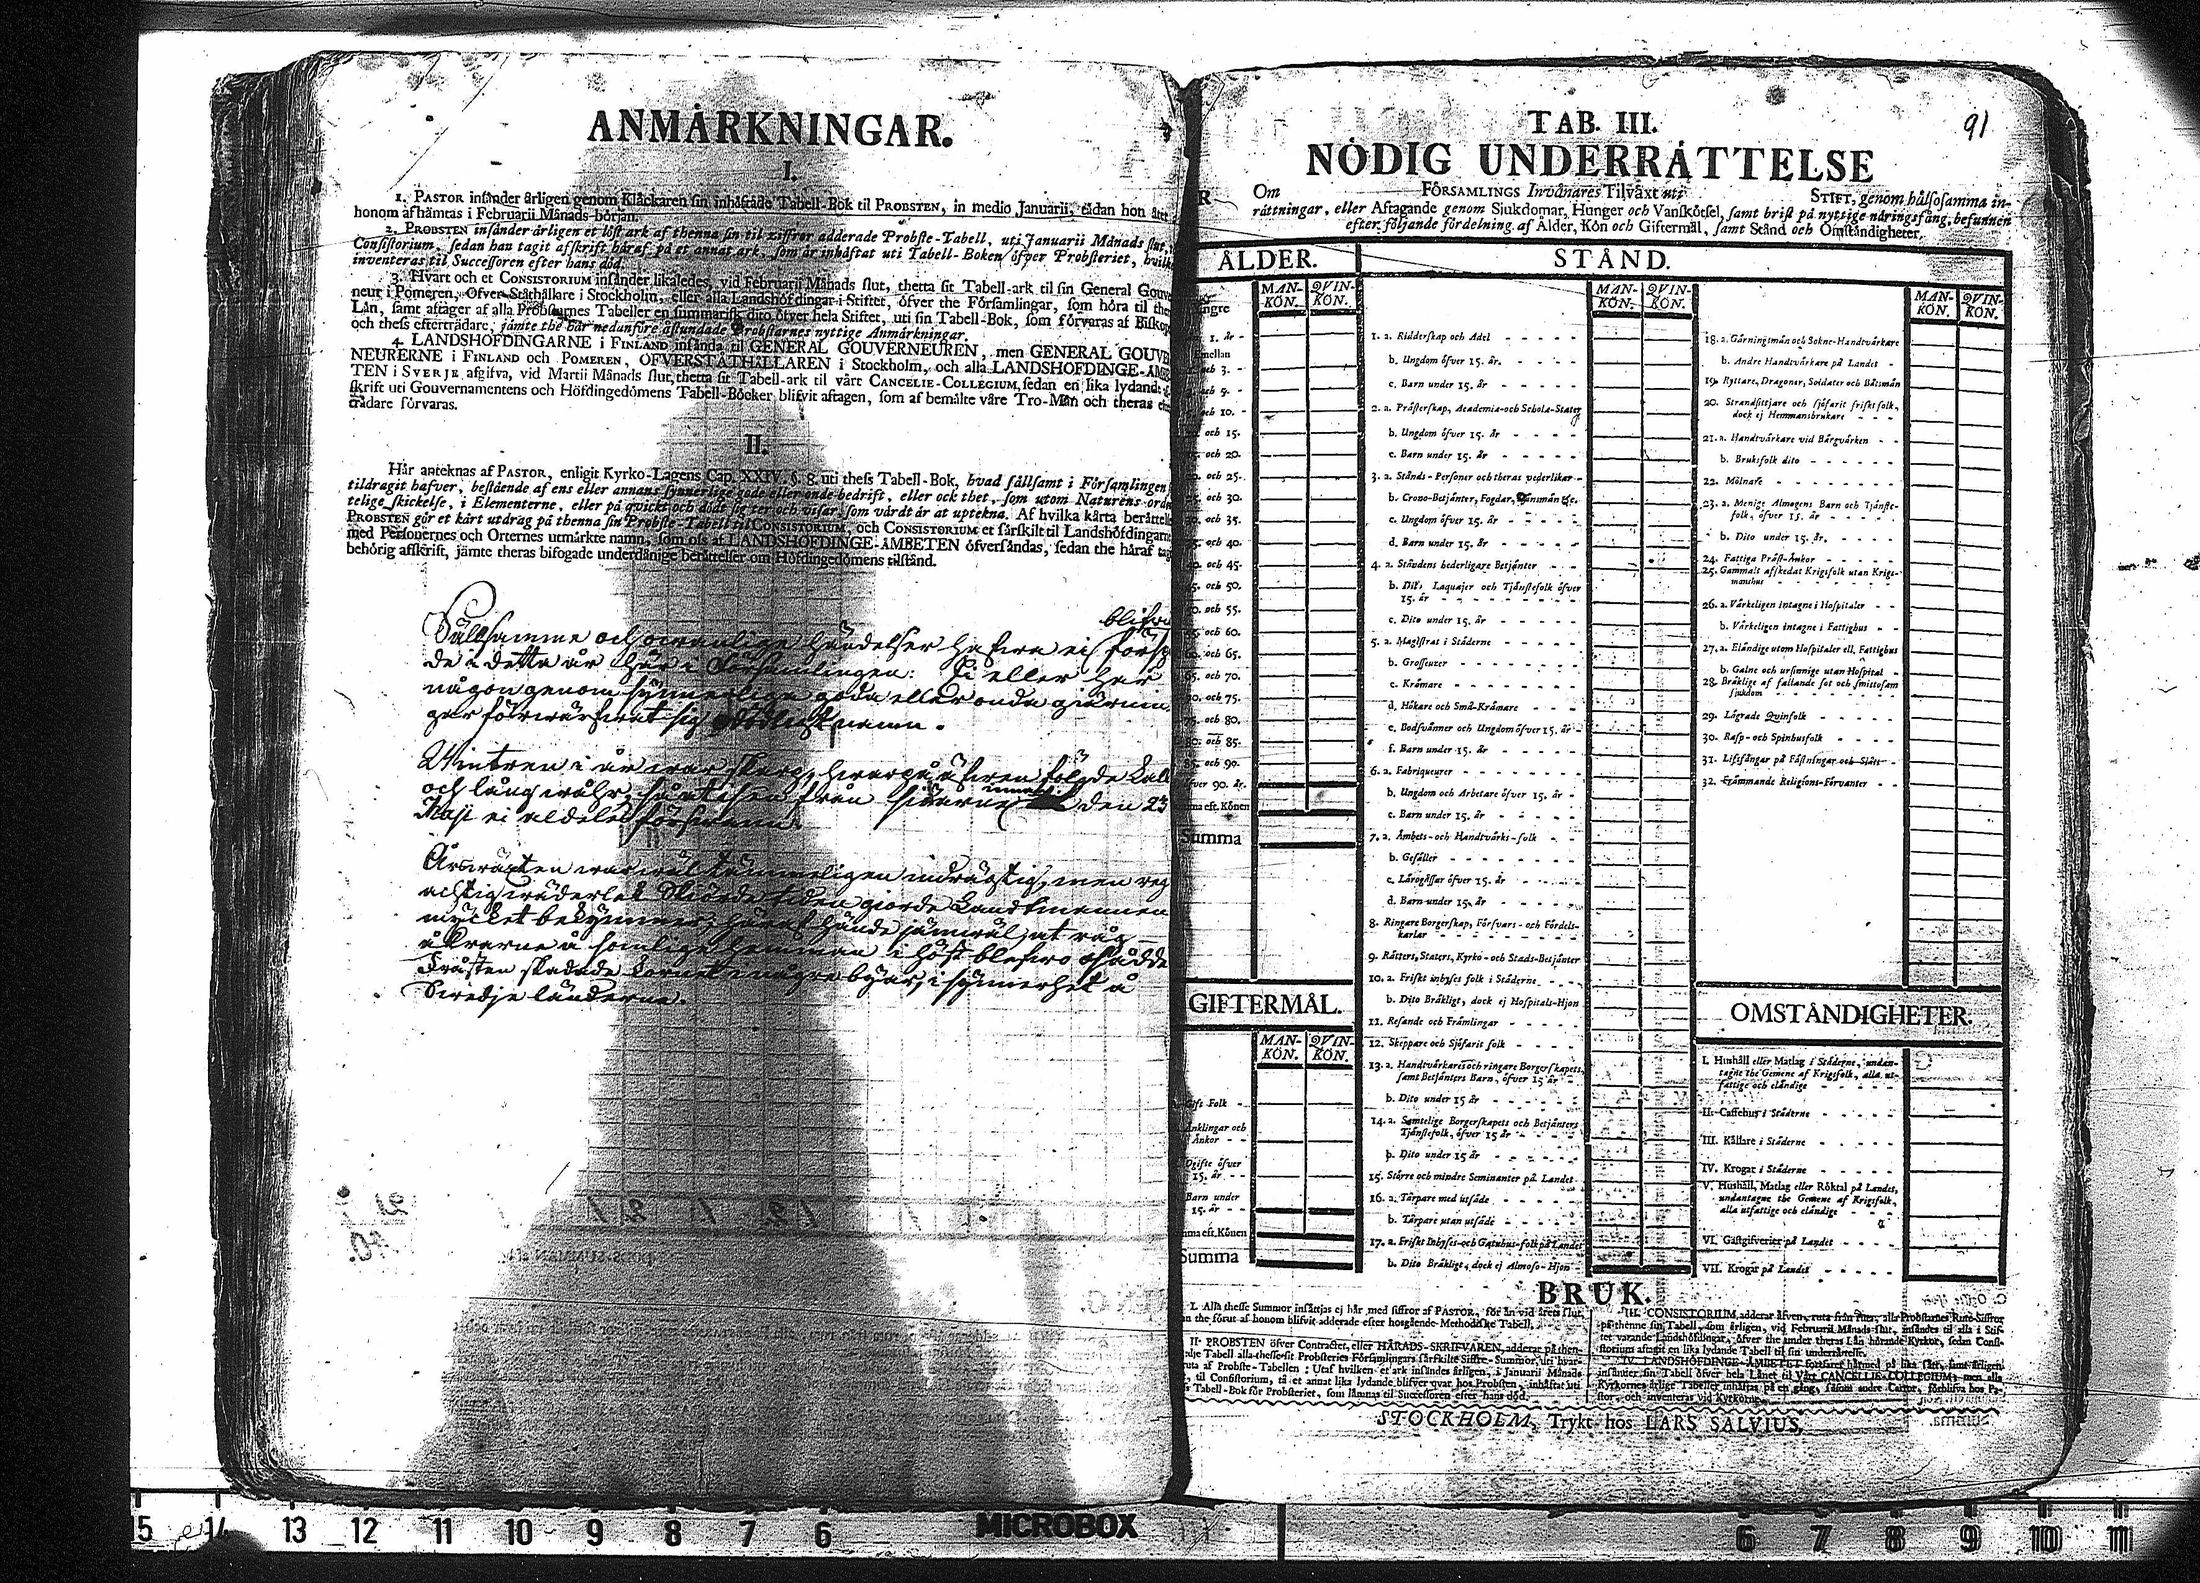 ANMÄRKNINGAR.
I.
1. PASTOR insänder årligen genom Kläckaren sin inhäftade Tabell-Bok til PROBSTEN, in medio Januarii, sedan hon åter
honom afhämtas i Februarii Månads-början.
2. PROBSTEN insänder årligen et löst ark af thenna sin til ziffror adderade Probste-Tabell, uti Januarii Månads slut,
Consistorium, sedan han tagit afskrift häraf på et annat ark, som är inhäftat uti Tabell-Boken öfver Probsteriet, hvilk
inventeras til Successoren efter hans död.
3. Hvart och et CONSISTORIUM insänder likaledes, vid Februarii Månads slut, thetta sit Tabell-ark til sin General Gouve
neur i Pomeren, Öfver-Ståthållare i Stockholm, eller alla Landshöfdingar i Stiftet, öfver the Församlingar, som höra til the
Län, samt aftager af alla Probstarnes Tabeller en summarisk dito öfver hela Stiftet, uti sin Tabell-Bok, som förvaras af Bisko
och thess efterträdare, jämte the här nedanföre åstundade Probstarnes nyttige Anmärkningar.
4. LANDSHÖFDINGARNE i FINLAND insända til GENERAL GOUVERNEUREN, men GENERAL GOUVE
NEURERNE i FINLAND och POMEREN, ÖFVERSTÅTHÅLLAREN i Stockholm, och alla LANDSHÖFDINGE-ÄMBE
TEN i SVERJE afgifva, vid Martii Månads slut, thetta sit Tabell-ark til vårt CANCELIE-COLLEGIUM, sedan en lika lydande af
skrift uti Gouvernamentens och Höfdingedömens Tabell-Böcker blifvit aftagen, som af bemälte våre Tro-Män och theras efter
trädare förvaras.
II.
Här anteknas af PASTOR, enligit Kyrko-Lagens Cap. XXIV. §. 8. uti thess Tabell-Bok, hvad sällsamt i Församlingen
tildragit hafver, bestående af ens eller annans synnerlige gode eller onde bedrift, eller ock thet, som utom Naturens orden
telige skickelse, i Elementerne, eller på qvickt och dödt sig ter och visar, som värdt är at uptekna. Af hvilka kårta berättelser
PROBSTEN gör et kårt utdrag på thenna sin Probste-Tabell til CONSISTORIUM, och CONSISTORIUM et särskilt til Landshöfdingarne
med Personernes och Orternes utmärkte namn, som oss af LANDSHÖFDINGE-ÄMBETEN öfversändas, sedan the häraf tag
behörig afskrift, jämte theras bifogade underdånige berättelser om Höfdingedömens tilstånd.
blifwi
Sällsamme och owanlige händelser hafwa ej förspor
de i detta år här i Församlingen: Ej eller har
någon genom synnerlige goda eller onda gierninn
gar förwärfwat sig namn.
Wintren i år war skarp, hwarpå äfwen följde kall
och lång wåhr, så at isen från siöarne innan den 23
Maji ej aldeles förswann.
Årswäxten war wäl tämmeligen indrägtig, men reg
achtig wäderlek Skiördetiden giorde Landtmannen
mycket bekymmer, häraf hände jämwäl, at råg
åkrarne å somlige hemman i höst blefwo osådde
Frosten skadade kornet i några byar, i synnerhet å
Swedje länderne.
TAB. III.
91
NÖDIG UNDERRÄTTELSE
Om FÖRSAMLINGS Invånares Tilväxt uti STIFT, genom hälsosamma in-
rättningar, eller Aftagande genom Sjukdomar, Hunger och Vanskötsel, samt brist på nyttige näringsfång, befunnen
efter följande fördelning af Ålder, Kön och Giftermål, samt Stånd och Omständigheter.
ÅLDER.
MAN-KÖN. QVIN-KÖN.
yngre
1. år -
Emellan
och 3. -
och 5. -
och 10. -
och 15.
och 20.
och 25.
och 30.
och 35.
och 40.
och 45.
och 50.
och 55.
och 60.
och 65.
och 70.
och 75.
och 80.
och 85.
och 90.
öfver 90. år.
ma eft. Könen
Summa
GIFTERMÅL.
MAN-KÖN. QVIN-KÖN.
Gift Folk
Änklingar och
Änkor
Ogifte öfver
15. år
Barn under
15. år
ma eft. Könen
Summa
STÅND.
MAN-KÖN. QVIN-KÖN.
1. a. Ridderskap och Adel
b. Ungdom öfver 15. år.
c. Barn under 15. år
2. a. Prästerskap, Academia- och Schola-Stater
b. Ungdom öfver 15. år
c. Barn under 15. år
3. a. Stånds-Personer och theras vederlikar
b. Crono-Betjänter, Fogdar, Länsmän &c.
c. Ungdom öfver 15. år
d. Barn under 15. år
4. a. Ståndens hederligare Betjänter
b. Dito Laquajer och Tjänstefolk öfver
15. år
c. Dito under 15. år
5. a. Magistrat i Städerne
b. Grosseurer
c. Krämare
d. Hökare och Små-Krämare
e. Bodsvänner och Ungdom öfver 15. år
f. Barn under 15. år
6. a. Fabriqueurer
b. Ungdom och Arbetare öfver 15. år
c. Barn under 15. år
7. a. Ämbets- och Handtvärks-folk
b. Gesäller
c. Lärogåssar öfver 15. år
d. Barn under 15. år
8. Ringare Borgerskap, Försvars- och Fördels-
karlar
9. Rätters, Staters, Kyrko- och Stads-Betjänter
10. a. Friskt inhyses folk i Städerne
b. Dito Bräkligt, dock ej Hospitals-Hjon
11. Resande och Främlingar
12. Skeppare och Sjöfarit folk
13. a. Handtvärkares och ringare Borgerskapets,
samt Betjänters Barn, öfver 15 år
b. Dito under 15 år
14. a. Samtelige Borgerskapets och Betjänters
Tjänstefolk, öfver 15 år
b. Dito under 15 år
15. Större och mindre Seminanter på Landet
16. a. Tårpare med utsäde
b. Tårpare utan utsäde
17. a. Friskt Inhyses- och Gatuhus-folk på Landet
b. Dito Bräkligt, dock ej Almoso-Hjon
MAN-KÖN. QVIN-KÖN.
18. a. Gärningsmän och Sokne-Handtvärkare
b. Andre Handtvärkare på Landet
19. Ryttare, Dragoner, Soldater och Båtsmän
20. Strandsittjare och sjöfarit friskt folk,
dock ej Hemmansbrukare
21. a. Handtvärkare vid Bärgvärken
b. Bruksfolk dito
22. Mölnare
23. a. Menige Almogens Barn och Tjänste-
folk, öfver 15. år
b. Dito under 15. år.
24. Fattiga Präst-Änkor
25. Gammalt afskedat Krigsfolk utan Krigs-
manshus
26. a. Värkeligen intagne i Hospitaler
b. Värkeligen intagne i Fattighus
27. a. Eländige utom Hospitaler ell. Fattighus
b. Galne och ursinnige utan Hospital
28. Bräklige af fallande sot och smittosam
sjukdom
29. Lägrade Qvinfolk
30. Rasp- och Spinhusfolk
31. Lifsfångar på Fästningar och Slätt
32. Främmande Religions-Förvanter
OMSTÄNDIGHETER.
I. Hushåll eller Matlag i Städerne, undan-
tagne the Gemene af Krigsfolk, alla ut-
fattige och eländige
II. Caffehus i Städerne
III. Källare i Städerne
IV. Krogar i Städerne
V. Hushåll, Matlag eller Röktal på Landet,
undantagne the Gemene af Krigsfolk,
alla utfattige och eländige
VI. Gästgifverier på Landet
VII. Krogar på Landet
BRUK.
I. Alla thesse Summor insättjas ej här med siffror af PASTOR, för än vid årets slut,
the förut af honom blifvit adderade efter hosgående Methodiske Tabell.
II. PROBSTEN öfver Contractet, eller HÄRADS-SKRIFVAREN, adderar på then-
Tabell alla thesse sit Probsteries Församlingars särskilte Siffre-Summor, uti hvar-
ruta af Probste-Tabellen: Utaf hvilken et ark insändes årligen, i Januarii Månads
til Consistorium, tå et annat lika lydande blifver qvar hos Probsten, inhäftat uti
Tabell-Bok för Probsteriet, som lämnas til Successoren efter hans död.
III. CONSISTORIUM adderar äfven, ruta från ruta, alla Probstarnes Rute-Siffror
på thenne sin Tabell, som årligen, vid Februarii Månads slut, insändes til alla i Stif-
tet varande Landshöfdingar, öfver the under theras Län hörande Kyrkor, sedan Consi-
storium aftagit en lika lydande Tabell til sin underrättelse.
IV. LANDSHÖFDINGE-ÄMBETET fortfarer härmed på lika sätt, samt årligen
insänder sin Tabell öfver hela Länet til Vårt CANCELLIE-COLLEGIUM; men alla
Kyrkornes årlige Tabeller inhäftas på en gång, såsom andre Cartor, förblifva hos Pa-
stor, och inventeras vid Kyrkorne.
STOCKHOLM, Trykt hos LARS SALVIUS.
15 14 13 12 11 10 9 8 7 6 MICROBOX 6 7 8 9 10 11